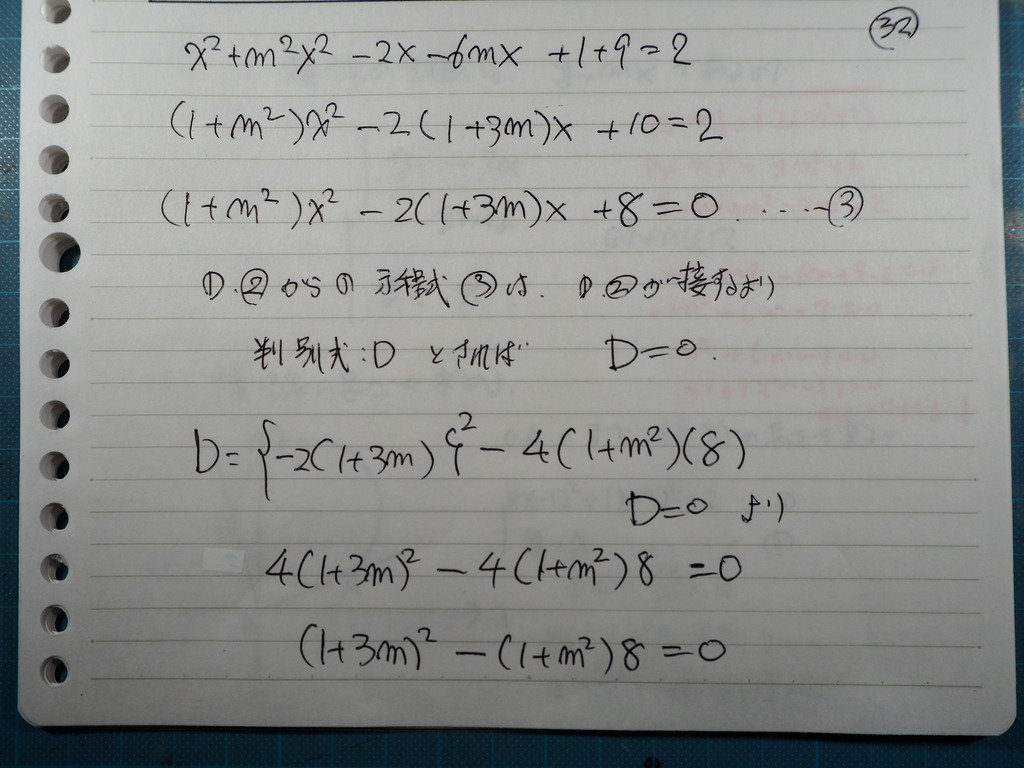 32
x²+m²x² -2x -6mx +1+9=2
(1+m²)x² -2(1+3m)x +10=2
(1+m²)x² -2(1+3m)x +8=0 ‥‥③
①.②からの方程式③は、①.②が接するより
判別式:D とすれば D=0.
D={-2(1+3m)}² - 4(1+m²)(8)
D=0 より
4(1+3m)² - 4(1+m²)8 =0
(1+3m)² - (1+m²)8 =0